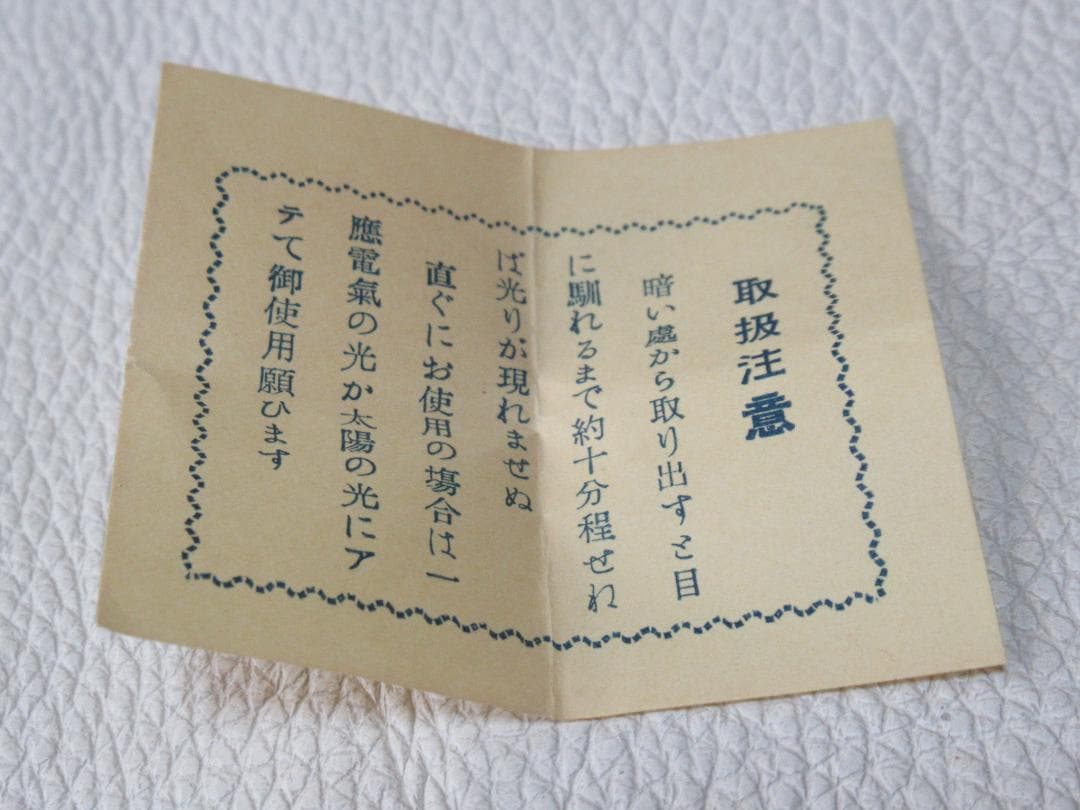 取扱注意
暗い處から取り出すと目
に馴れるまで約十分程せね
ば光りが現れませぬ
直ぐにお使用の塲合は一
應電氣の光か太陽の光にア
テて御使用願ひます